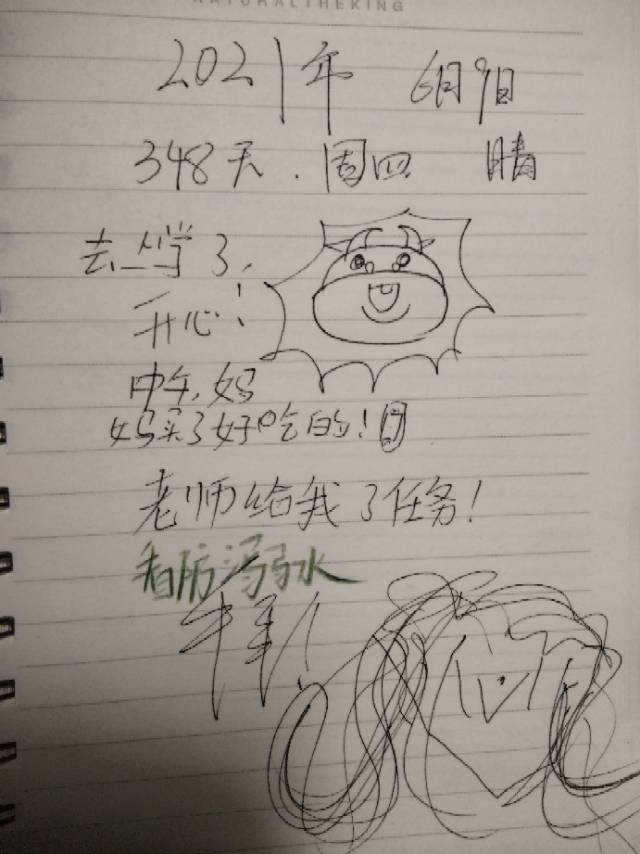 NATURALTHEKING
2021年 6月9日
348天. 周四 晴
去上学了,
开心!
中午,妈
妈买了好吃的!
老师给我了任务!
看防溺水